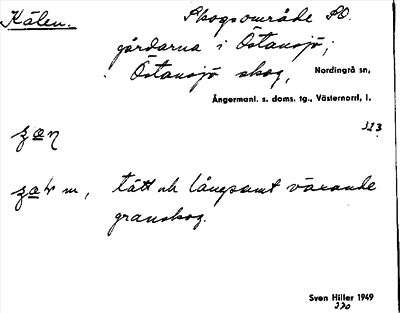 Kälen. Skogsområde SO.
gårdarna i Östansjö,
Östansjö skog, Nordingrå sn,
Ångermanl. s. doms. tg., Västernorrl, l.
113
m, tätt och långsamt växande
granskog.
Sven Hiller 1949
220